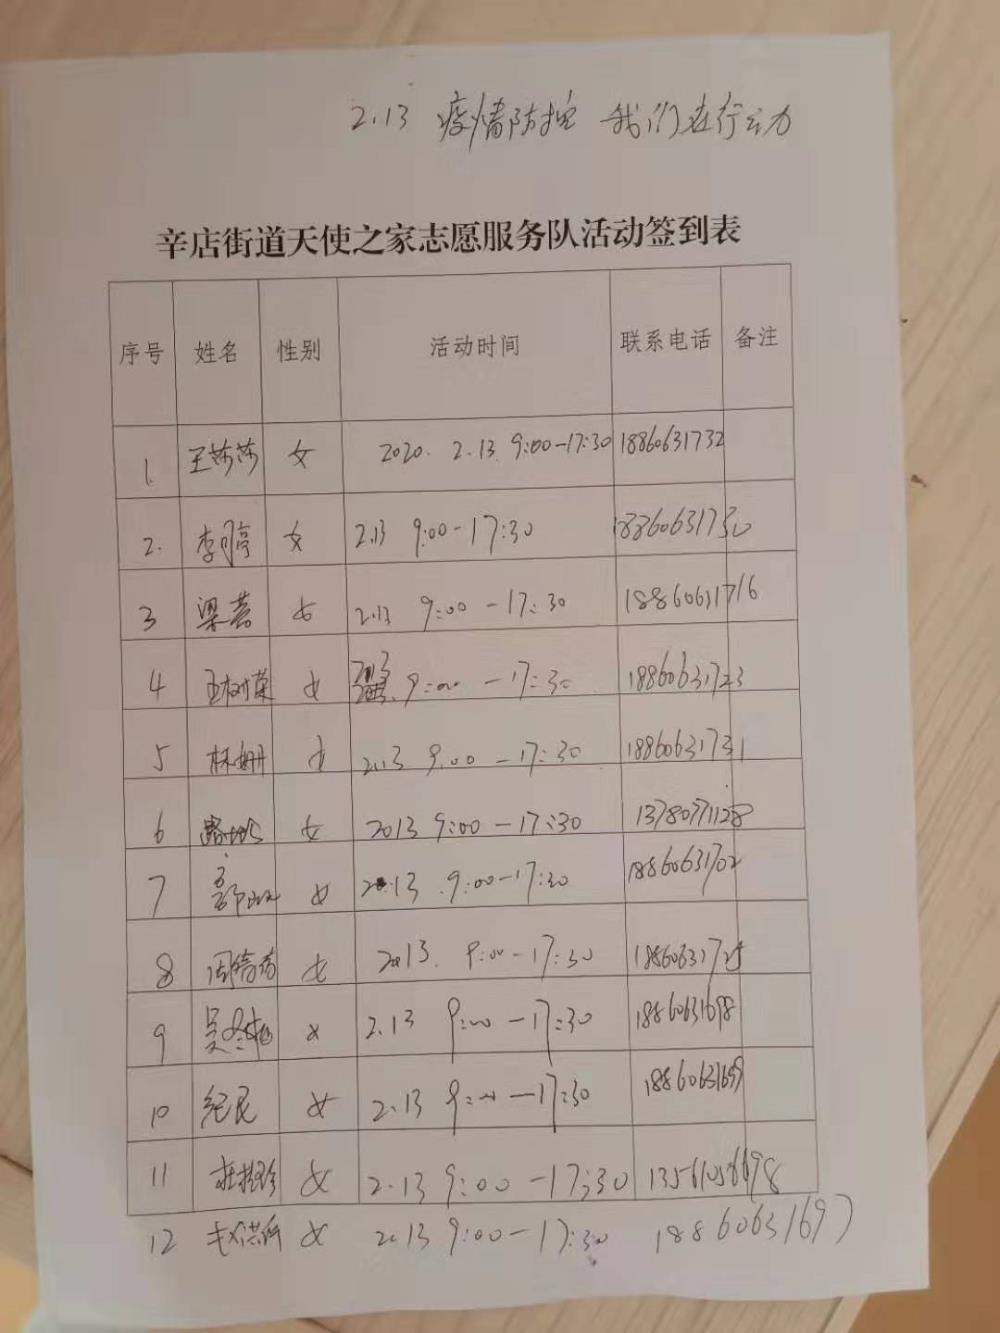 2.13 疫情防控 我们在行动
辛店街道天使之家志愿服务队活动签到表
序号 姓名 性别 活动时间 联系电话 备注
1. 王莎莎 女 2020. 2.13. 9:00-17:30 18860631732
2. 李 亭 女 2.13 9:00-17:30 18860631730
3 梁 女 2.13 9:00-17:30 18860631716
4 王树菊 女 9:00-17:30 18860631723
5 林姗 女 2.13 9:00-17:30 18860631731
6 女 2013 9:00-17:30 13780771128
7 女 2.13 9:00-17:30 18860631702
8 周 女 2.13. 9:00-17:30 18860631725
9 吴冬梅 女 2.13 9:00-17:30 18860631698
10 纪民 女 2.13 9:00-17:30 18860631699
11 女 2.13 9:00-17:30 13561056698
12 女 2.13 9:00-17:30 18860631697